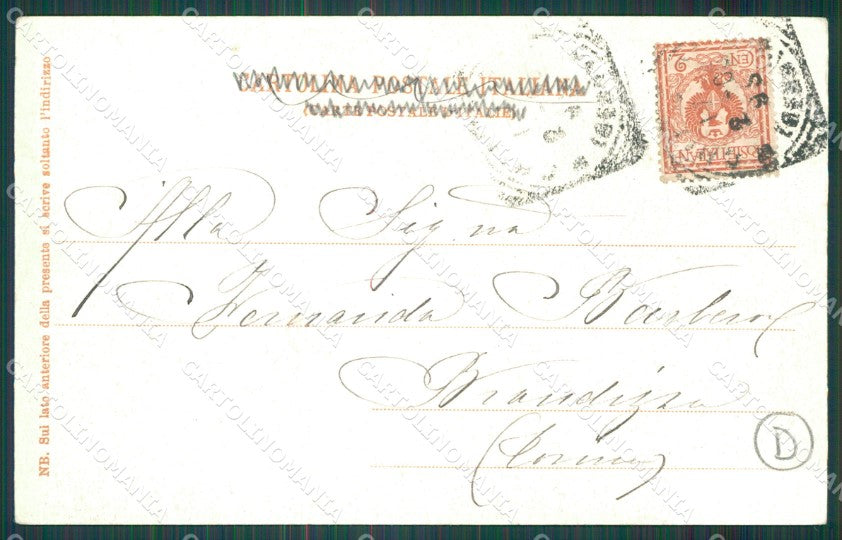 CARTOLINA POSTALE ITALIANA
(CARTE POSTALE D'ITALIE)
Alla Sig.na
Fernanda Barbero
Brandizzo
(Torino)
D
NB. Sul lato anteriore della presente si scrive soltanto l'indirizzo
CARTOLINOMANIA